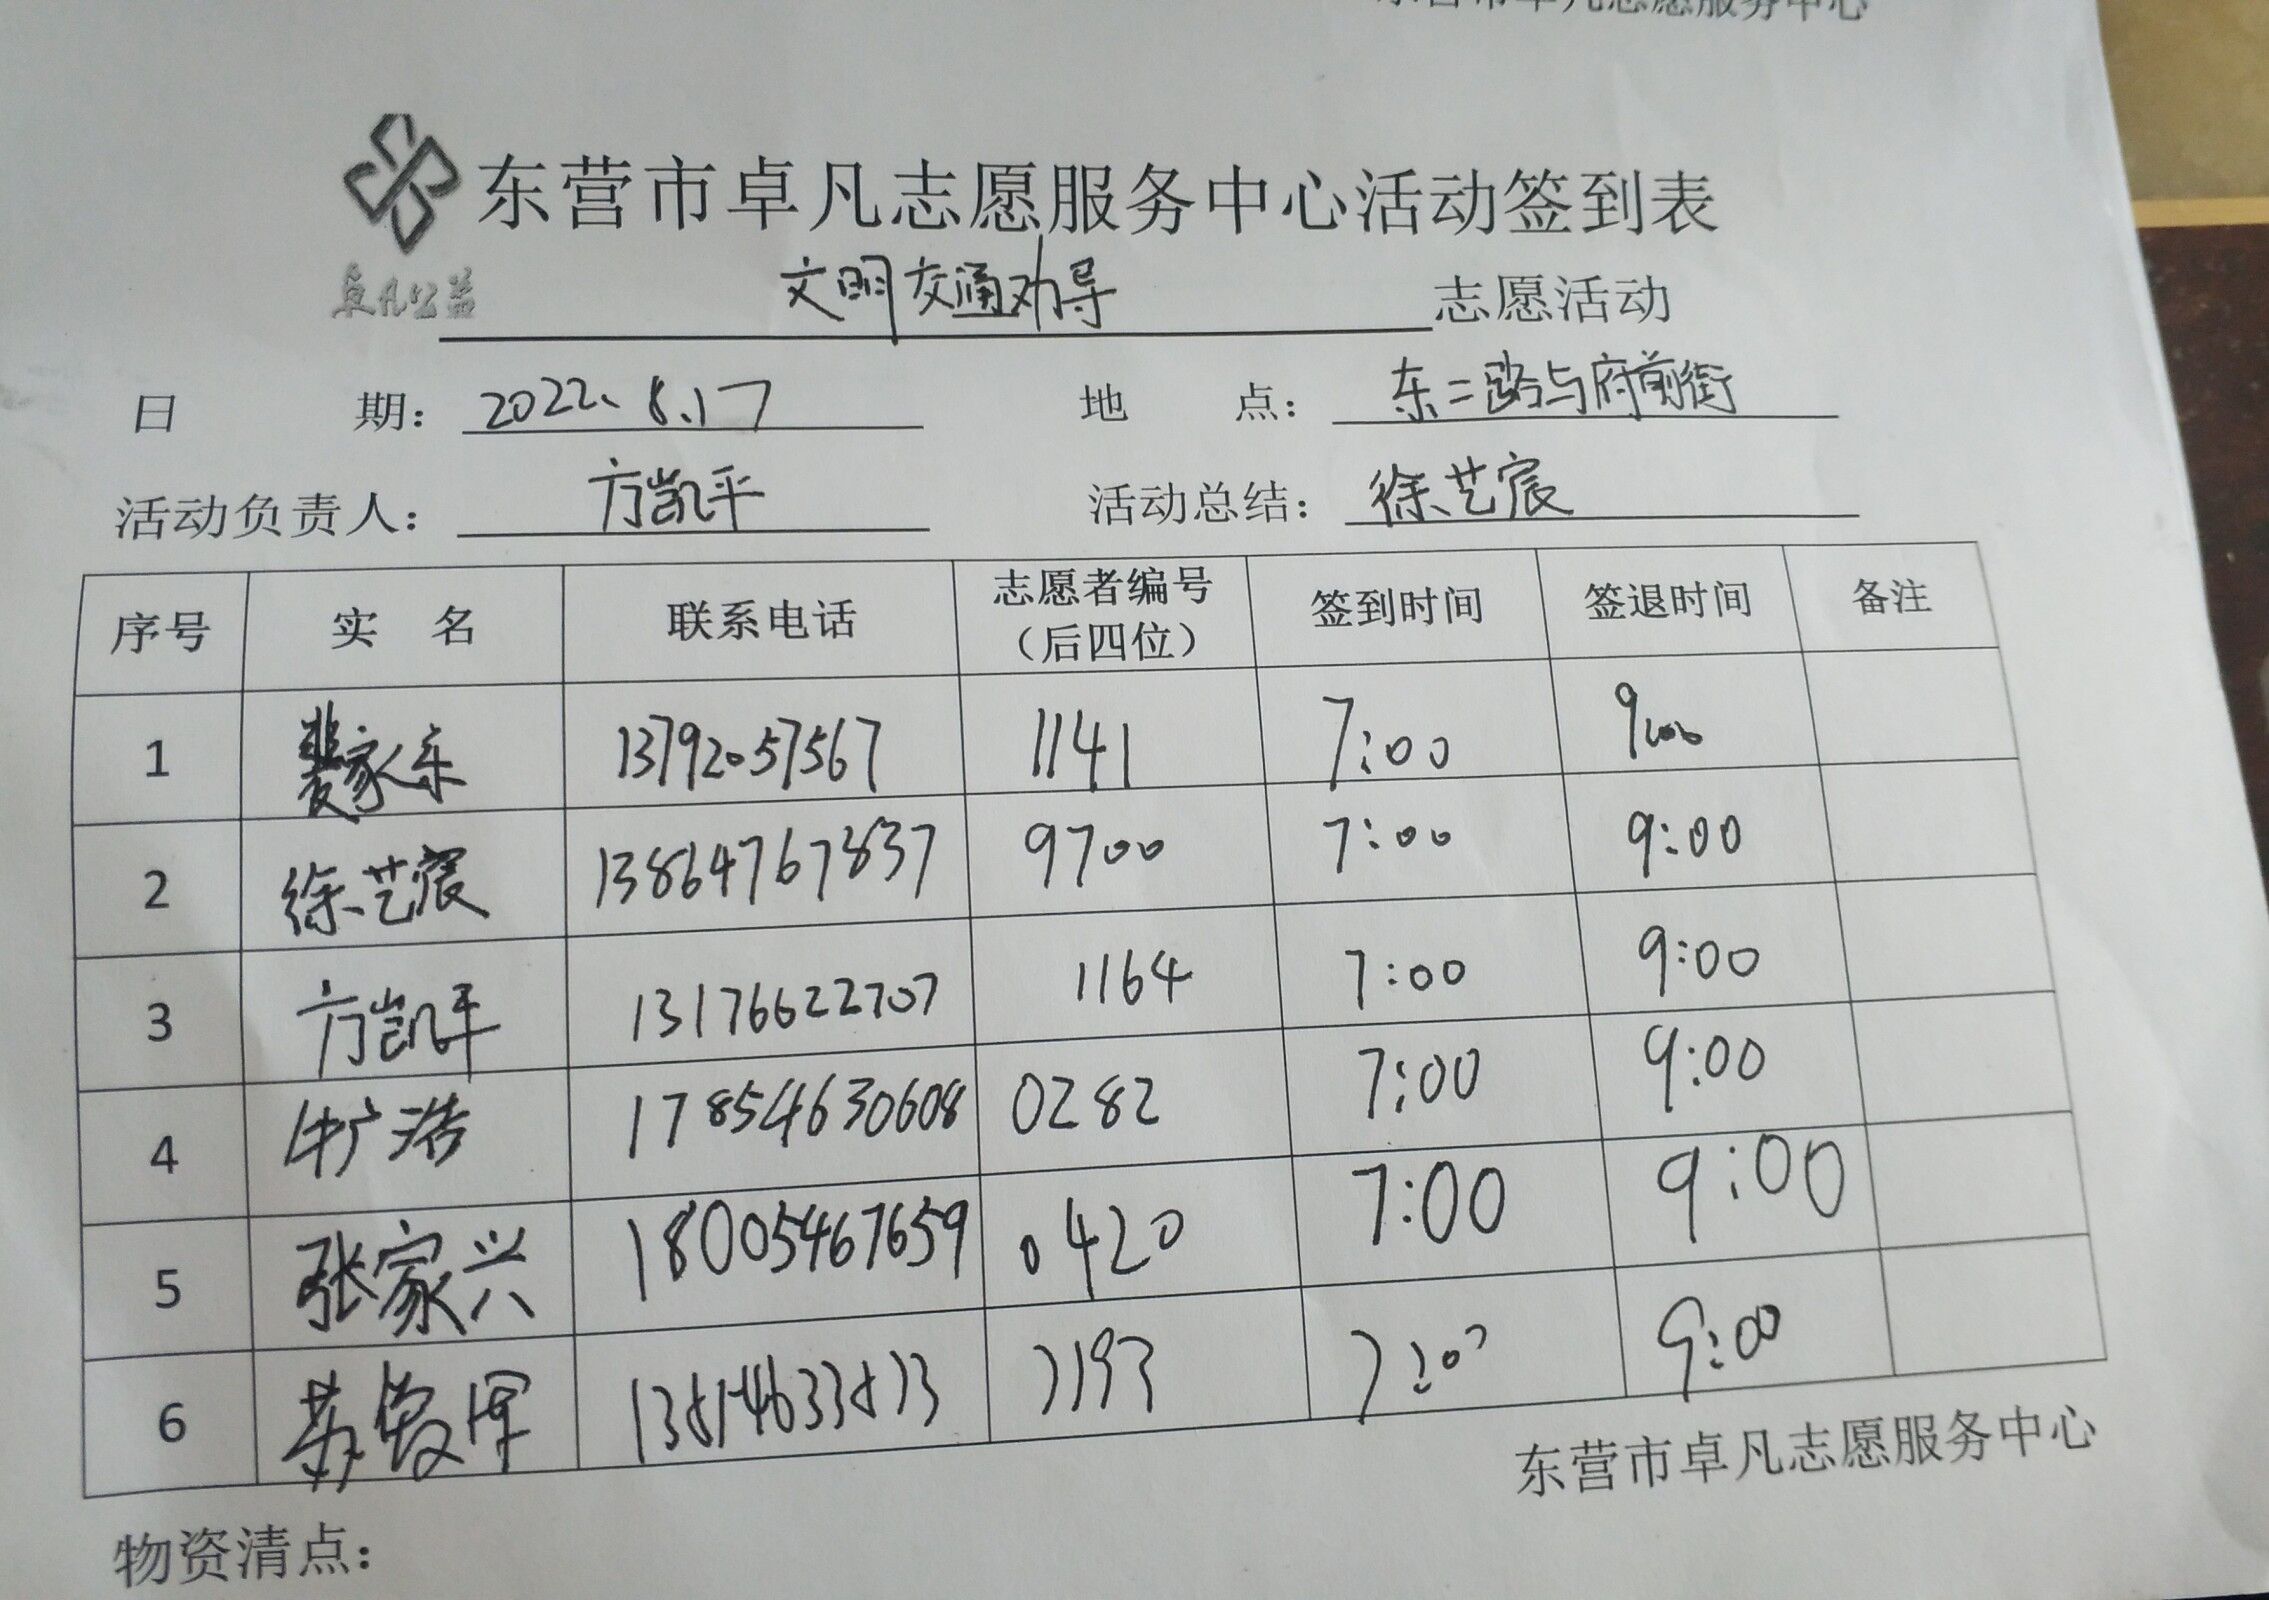 东营市卓凡志愿服务中心
东营市卓凡志愿服务中心活动签到表
卓凡公益
文明交通劝导 志愿活动
日 期： 2022.8.17 地 点： 东二路与府前街
活动负责人： 方凯平 活动总结： 徐艺宸
序号 实 名 联系电话 志愿者编号（后四位） 签到时间 签退时间 备注
1 裴家乐 13792057567 1141 7:00 9:00
2 徐艺宸 13864767837 9700 7:00 9:00
3 方凯平 13176622707 1164 7:00 9:00
4 浩 17854630608 0282 7:00 9:00
5 张家兴 18005467659 0420 7:00 9:00
6 7193 7:00 9:00
东营市卓凡志愿服务中心
物资清点：